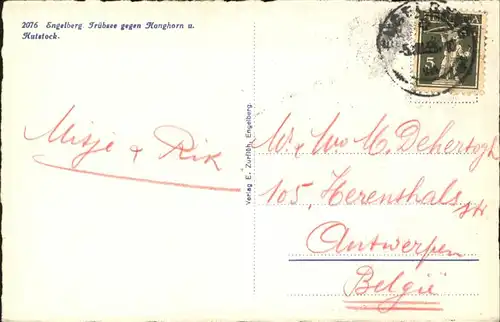 2076 Engelberg Trübsee gegen Hanghorn u.
Hutstock.
Mitje & Rik
Verlag E. Zurflüh, Engelberg.
HELVETIA
5
M. & Mvo M. Dehertogh
105, Herenthals str
Antwerpen
België